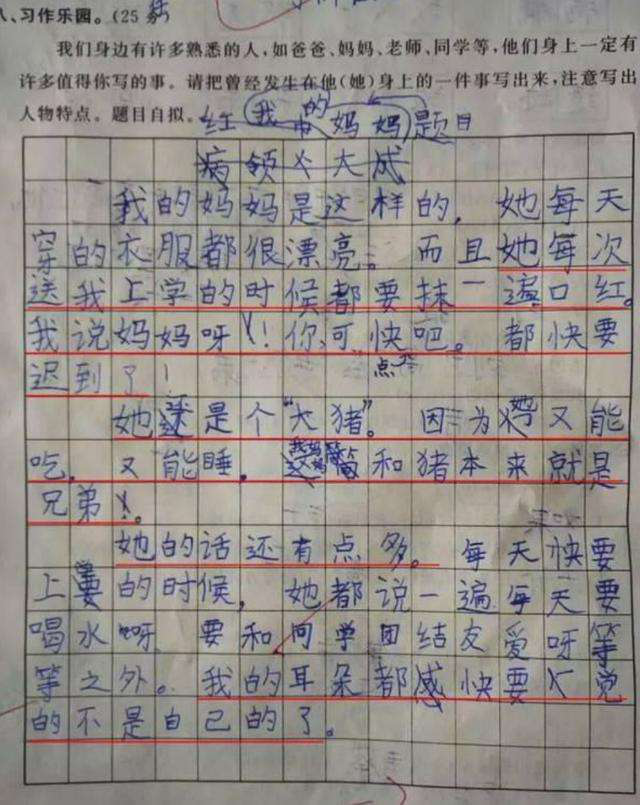 八、习作乐园。(25分)
我们身边有许多熟悉的人,如爸爸、妈妈、老师、同学等,他们身上一定有
许多值得你写的事。请把曾经发生在他(她)身上的一件事写出来,注意写出
人物特点。题目自拟。
红 我的妈妈 题目
病领大成
我的妈妈是这样的,她每天
穿的衣服都很漂亮。而且她每次
送我上学的时候都要抹一遍口红。
我说妈妈呀!你可快点吧。都快要
迟到了!
她还是个“大猪”。因为她又能
吃,又能睡,我妈和猪本来就是
兄弟。
她的话还有点多。每天快要
上学的时候,她都说一遍每天要
喝水呀要和同学团结友爱呀等
等之外。我的耳朵都感快要觉
的不是自己的了。